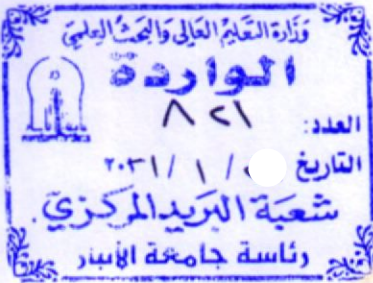 وزارة التعليم العالي والبحث العلمي
الواردة
العدد: ٨٢١
التاريخ / ١ / ٢٠٢١
شعبة البريد المركزي.
رئاسة جامعة الأنبار